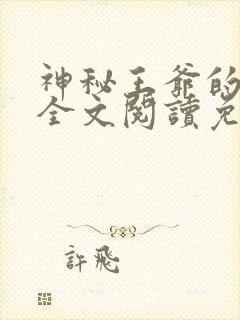 神秘王爺的
全文閱讀免
許飛